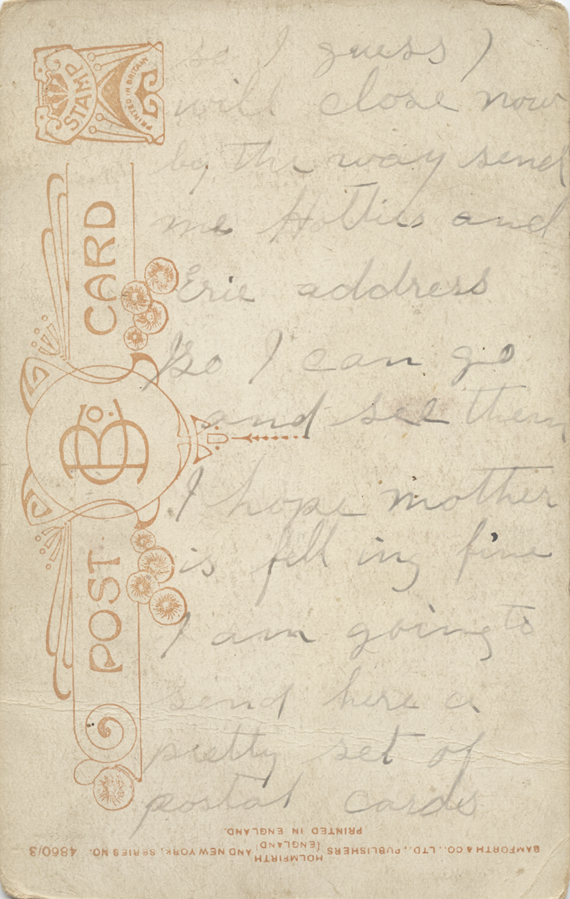 so I guess I
will close now
by the way send
me Hotties and
Erie address
So I can go
and see them
I hope mother
is fell ing fine
I am going to
send here a
pretty set of
postal cards
STAMP
PRINTED IN BRITAIN
POST CARD
B & Co.
BAMFORTH & CO., LTD., PUBLISHERS HOLMFIRTH (ENGLAND) AND NEW YORK. SERIES NO. 4860/3
PRINTED IN ENGLAND.